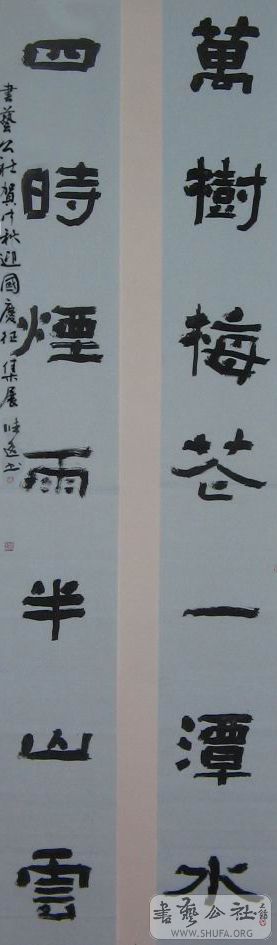 萬樹梅花一潭水
四時煙雨半山雲
書藝公社賀中秋迎國慶征集展
書藝公社
WWW.SHUFA.ORG